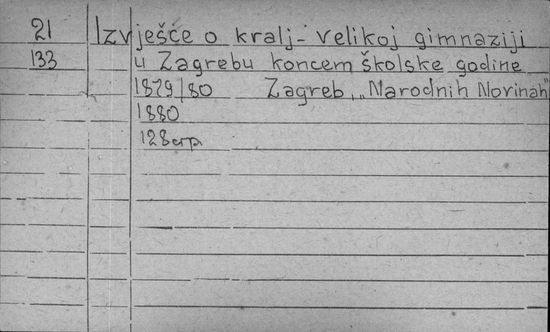 21 Izvješće o kralj- velikoj gimnaziji
133 u Zagrebu koncem školske godine
1879/80 Zagreb, „Narodnih Novinah"
1880
128 стр